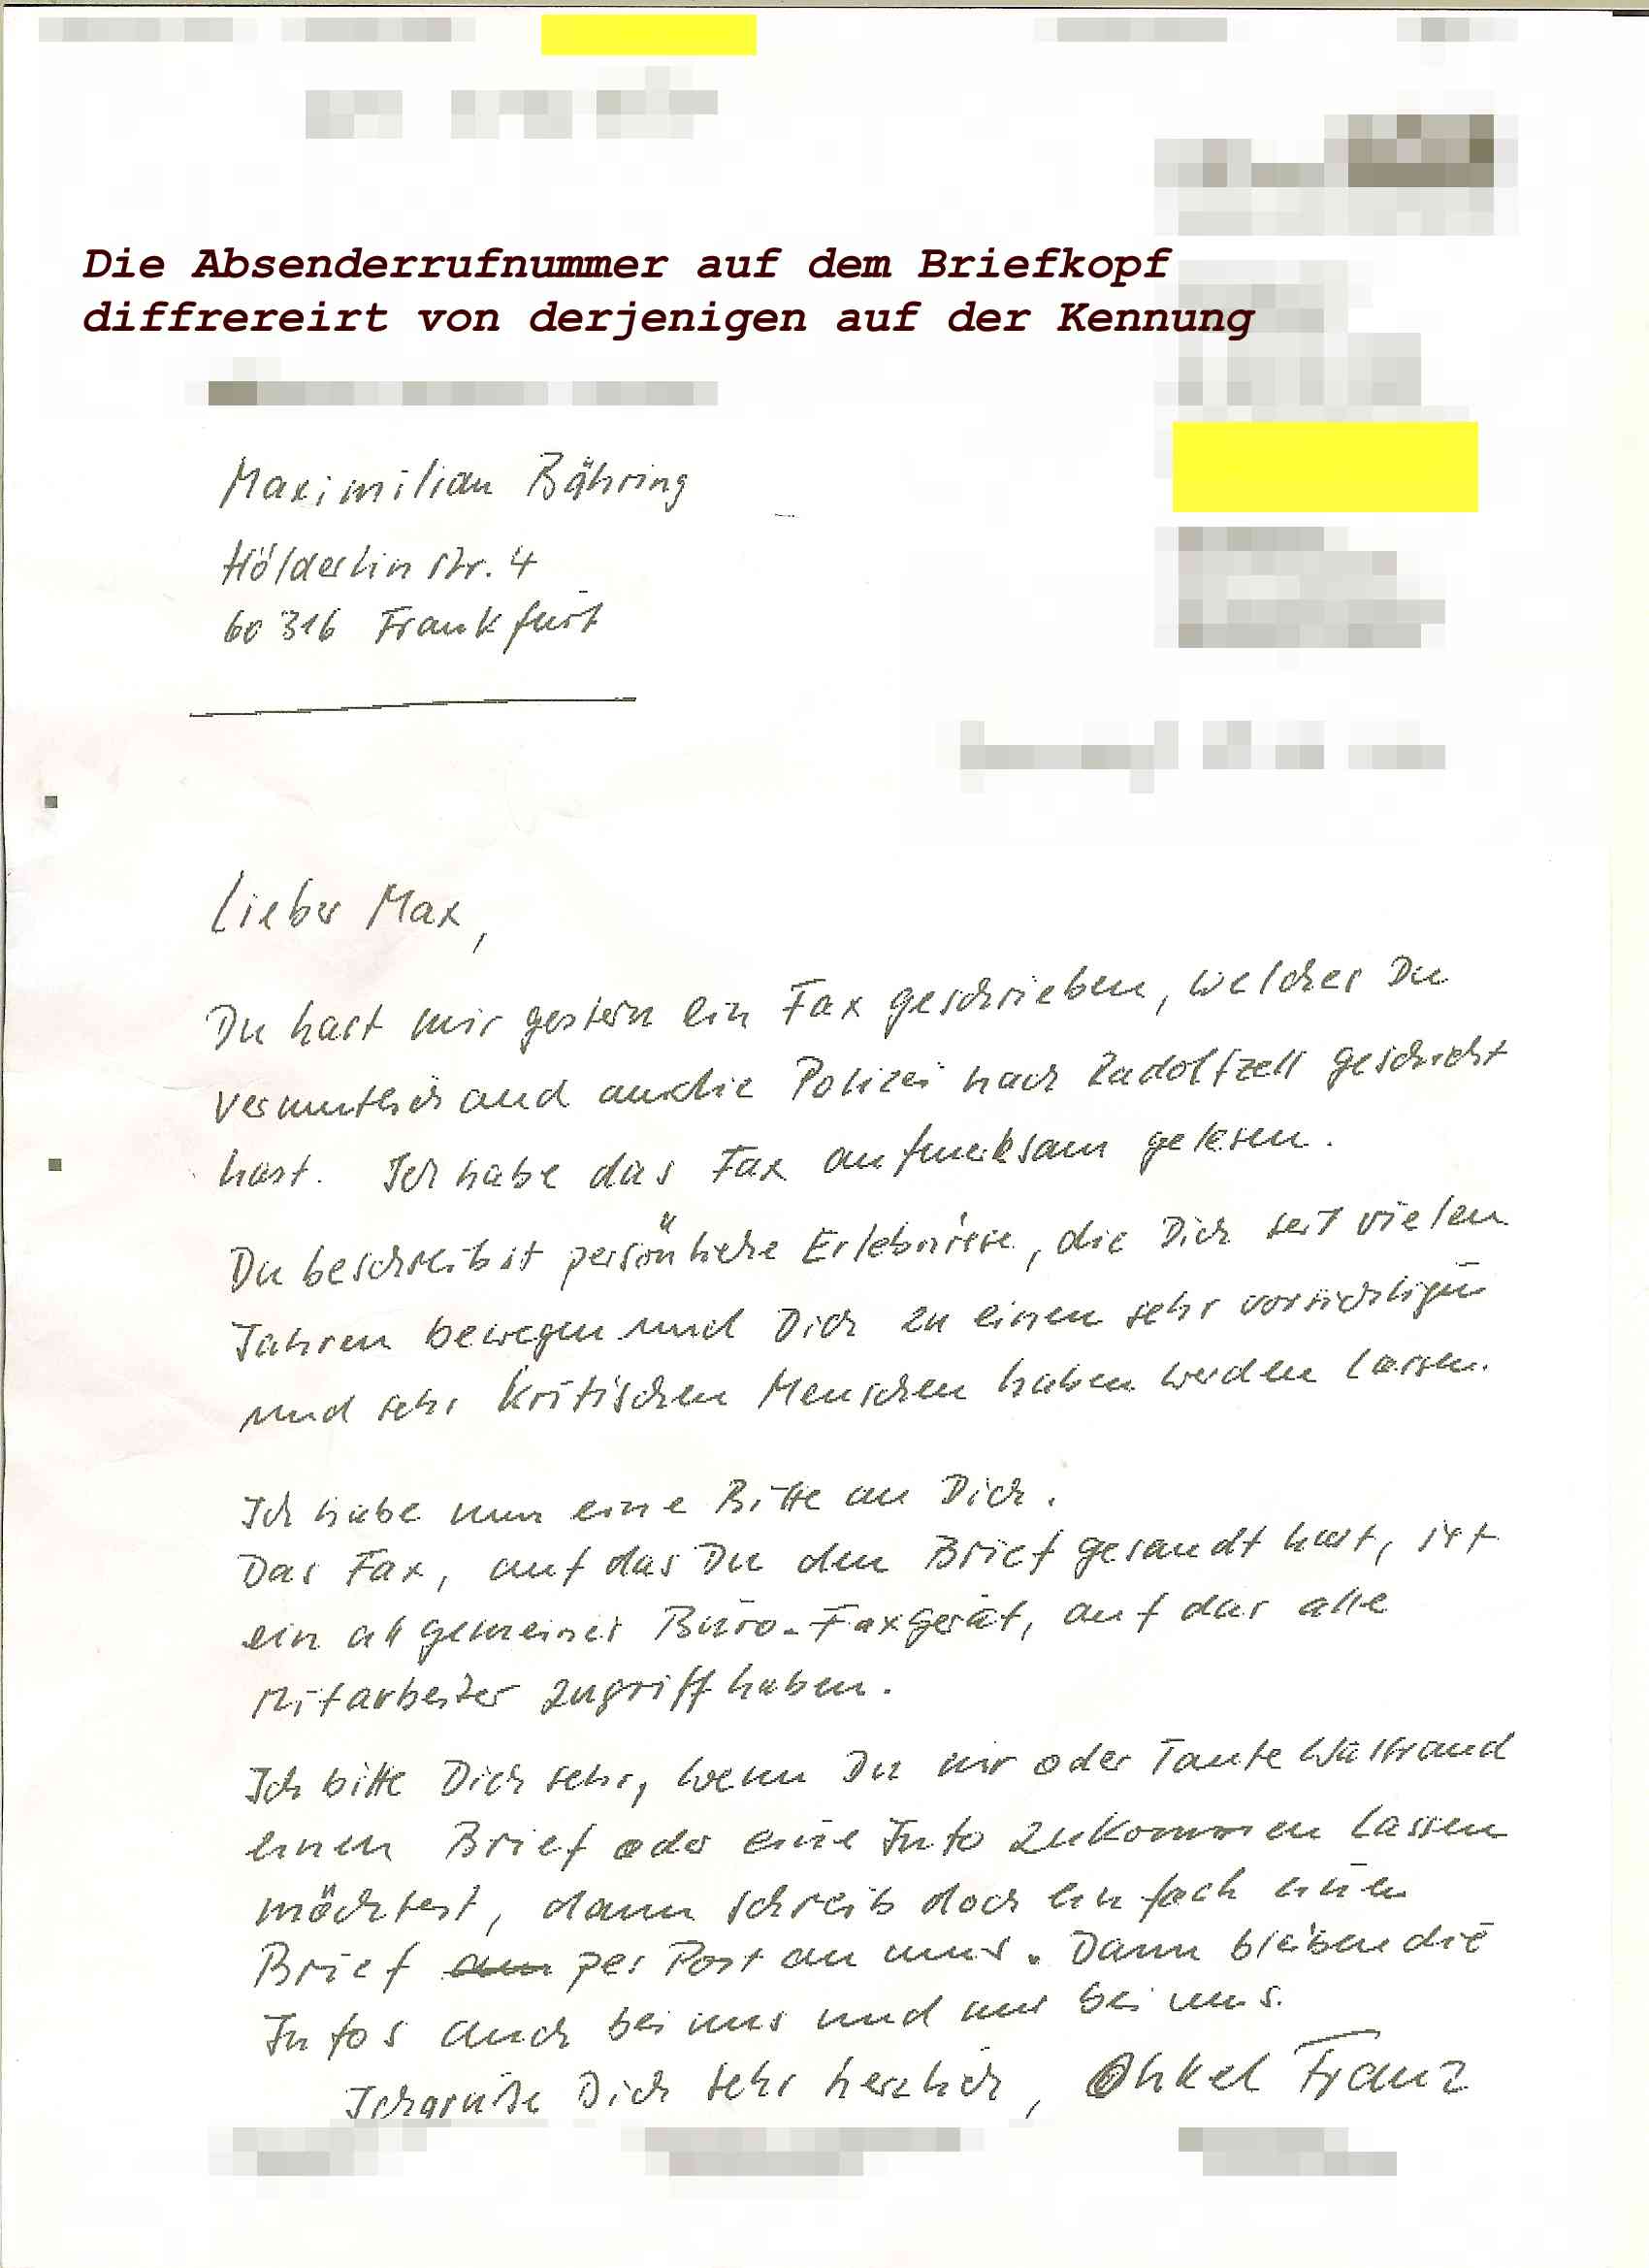 Die Absenderrufnummer auf dem Briefkopf
diffrereirt von derjenigen auf der Kennung
Maximilian Bähring
Hölderlinstr. 4
60316 Frankfurt
Lieber Max,
Du hast mir gestern ein Fax geschrieben, welches Du
vermutlich auch an die Polizei nach Radolfzell geschickt
hast. Ich habe das Fax aufmerksam gelesen.
Du beschreibst persönliche Erlebnisse, die Dich seit vielen
Jahren bewegen und Dich zu einen sehr vorsichtigen
und sehr kritischen Menschen haben werden lassen.
Ich habe nun eine Bitte an Dich.
Das Fax, auf das Du den Brief gesandt hast, ist
ein allgemeines Büro-Faxgerät, auf das alle
Mitarbeiter zugriff haben.
Ich bitte Dich sehr, wenn Du mir oder Tante Waltraud
einen Brief oder eine Info zukommen lassen
möchtest, dann schreib doch einfach einen
Brief per Post an uns. Dann bleiben die
Infos auch bei uns und nur bei uns.
Ich grüße Dich sehr herzlich, Onkel Franz